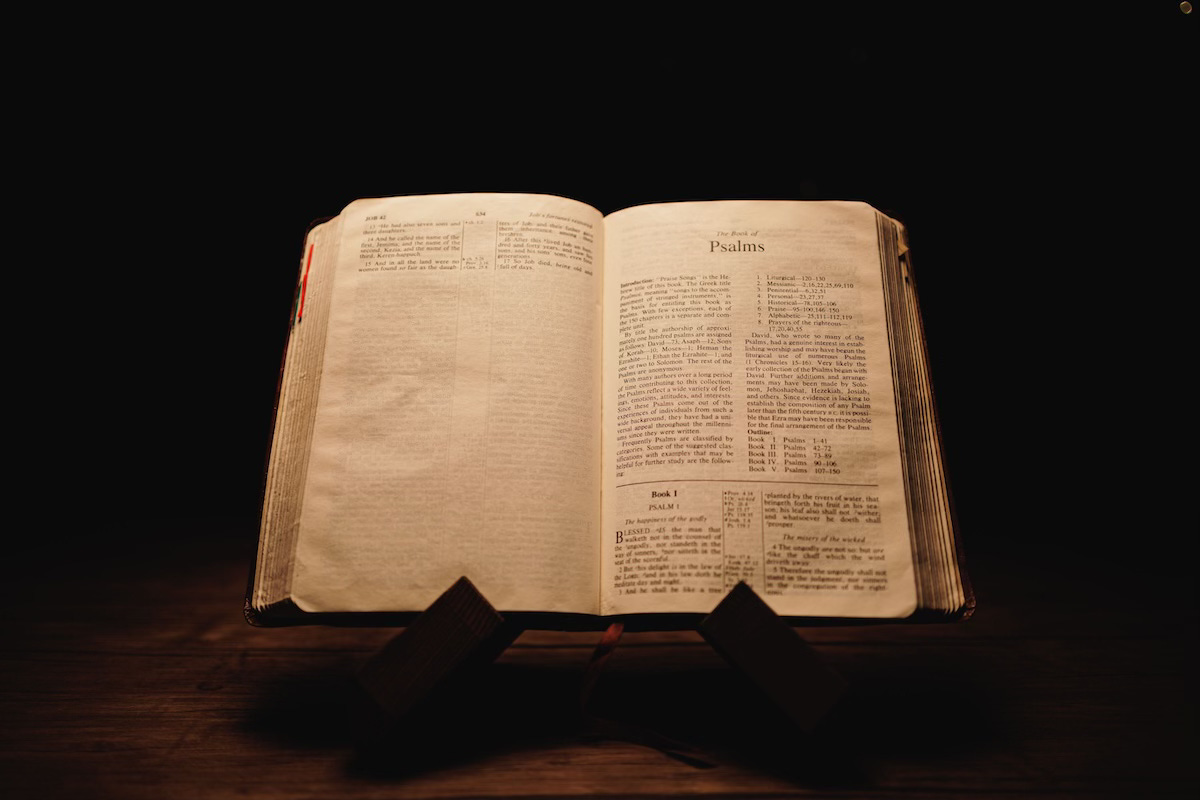 JOB 42
634
Job's farewell
13 He had also seven sons and
three daughters.
14 And he called the name of the
first, Jemima; and the name of the
second, Kezia; and the name of the
third, Keren-happuch.
15 And in all the land were no
women found so fair as the daugh-
ters of Job: and their father gave
them inheritance among their
brethren.
16 After this lived Job an hun-
dred and forty years, and saw his
sons, and his sons' sons, even four
generations.
17 So Job died, being old and
full of days.
The Book of
Psalms
Introduction: "Praise Songs" is the He-
brew title of this book. The Greek title
Psalmos, meaning "songs to the accom-
paniment of stringed instruments," is
the basis for entitling this book as
Psalms. With few exceptions, each of
the 150 chapters is a separate and com-
plete unit.
By title the authorship of approxi-
mately one hundred psalms are assigned
as follows: David—73; Asaph—12; Sons
of Korah—10; Moses—1; Heman the
Ezrahite—1; Ethan the Ezrahite—1; and
one or two to Solomon. The rest of the
Psalms are anonymous.
With many authors over a long period
of time contributing to this collection,
the Psalms reflect a wide variety of feel-
ings, emotions, attitudes, and interests.
Since these Psalms come out of the
experiences of individuals from such a
wide background, they have had a uni-
versal appeal throughout the millenni-
ums since they were written.
Frequently Psalms are classified by
categories. Some of the suggested clas-
sifications with examples that may be
helpful for further study are the follow-
ing:
1. Liturgical—120-130
2. Messianic—2,16,22,25,69,110
3. Penitential—6,32,51
4. Personal—23,27,37
5. Historical—78,105-106
6. Praise—95-100,146-150
7. Alphabetic—25,111-112,119
8. Prayers of the righteous—
17,20,40,55
David, who wrote so many of the
Psalms, had a genuine interest in estab-
lishing worship and may have begun the
liturgical use of numerous Psalms
(1 Chronicles 15-16). Very likely the
early collection of the Psalms began with
David. Further additions and arrange-
ments may have been made by Solo-
mon, Jehoshaphat, Hezekiah, Josiah,
and others. Since evidence is lacking to
establish the composition of any Psalm
later than the fifth century B.C. it is possi-
ble that Ezra may have been responsible
for the final arrangement of the Psalms.
Outline:
Book I Psalms 1-41
Book II. Psalms 42-72
Book III. Psalms 73-89
Book IV. Psalms 90-106
Book V. Psalms 107-150
Book I
PSALM 1
The happiness of the godly
BLESSED is the man that
walketh not in the counsel of
the ungodly, nor standeth in the
way of sinners, nor sitteth in the
seat of the scornful.
2 But his delight is in the law of
the LORD; and in his law doth he
meditate day and night.
3 And he shall be like a tree
planted by the rivers of water, that
bringeth forth his fruit in his sea-
son; his leaf also shall not wither;
and whatsoever he doeth shall
prosper.
The misery of the wicked
4 The ungodly are not so: but are
like the chaff which the wind
driveth away.
5 Therefore the ungodly shall not
stand in the judgment, nor sinners
in the congregation of the right-